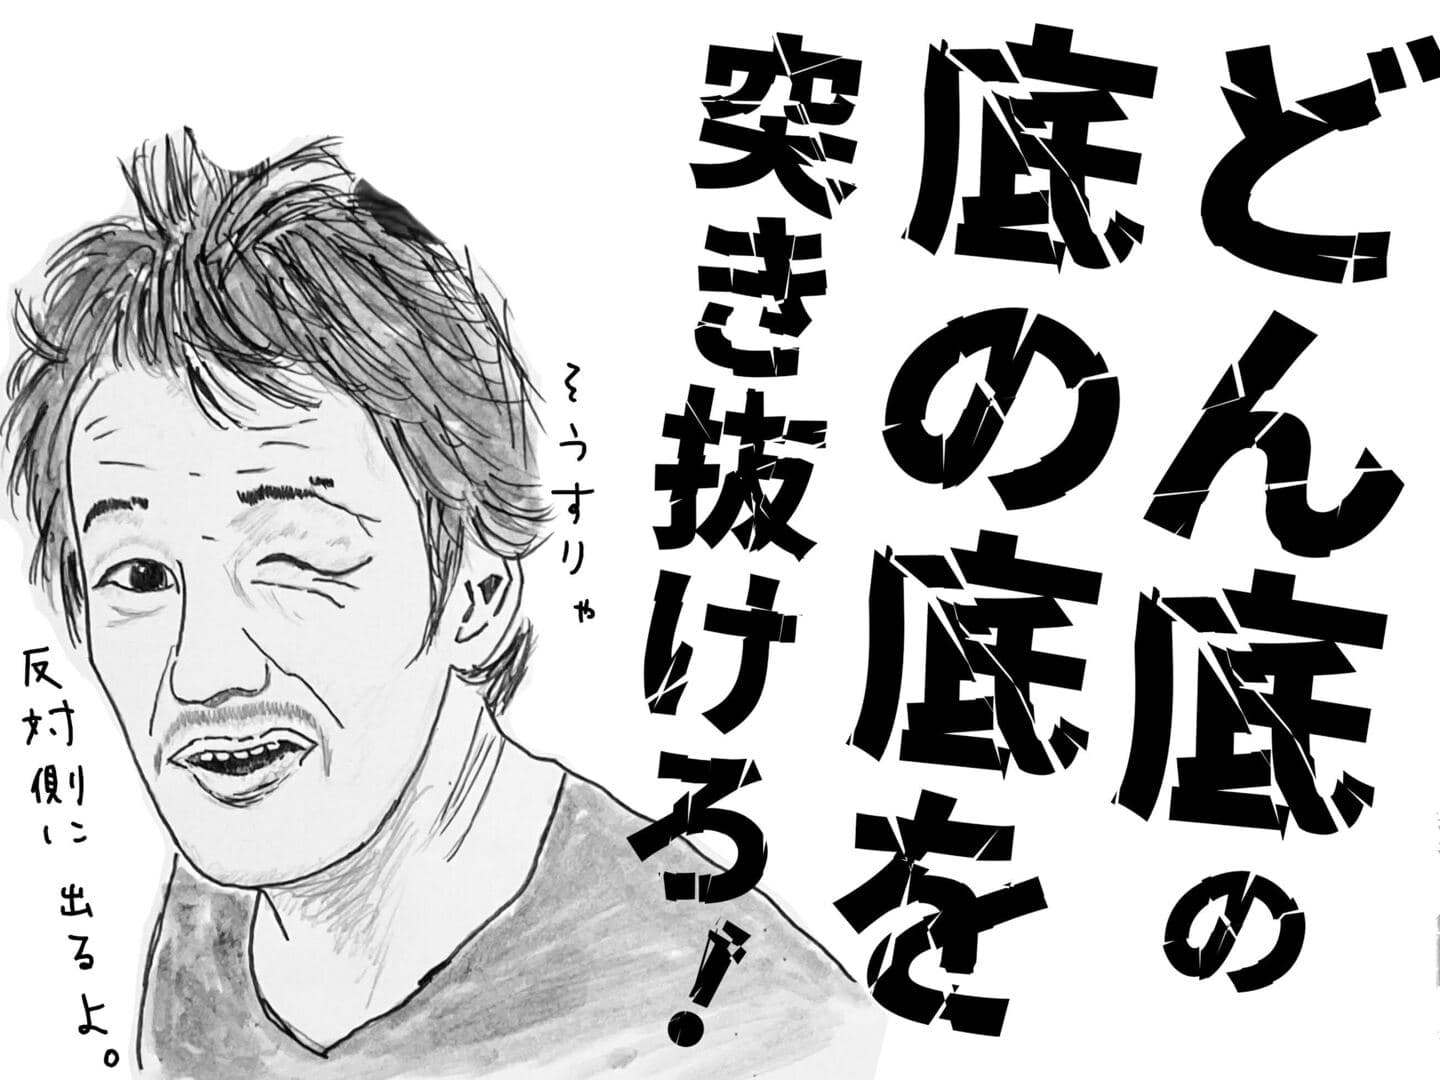 どん底の
底の底を
突き抜けろ!
〜うすりゃ
反対側に出るよ。